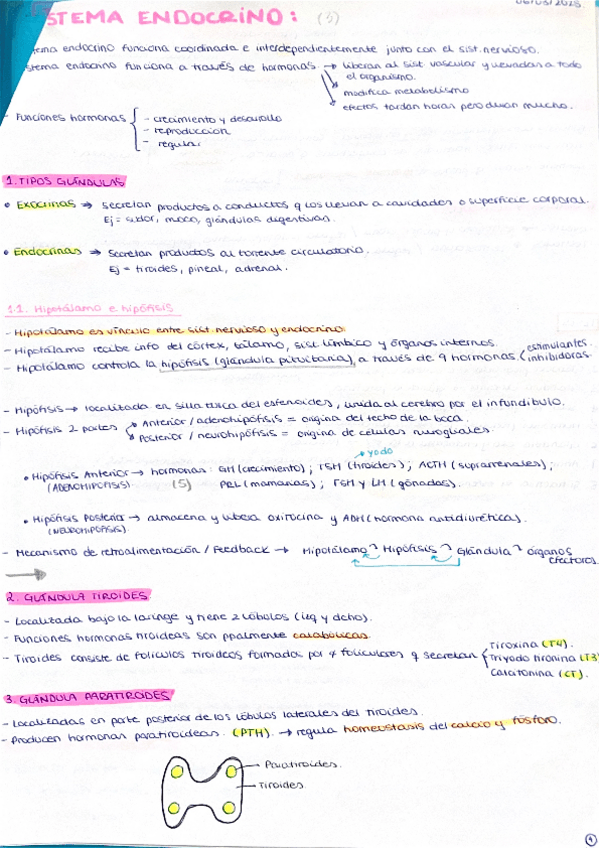 STEMA ENDOCRINO: (3)
06/03/2023
tema endocrino funciona coordinada e interdependientemente junto con el sist. nervioso.
stema endocrino funciona a través de hormonas → liberan al sist vascular y llevadas a todo
el organismo.
modifica metabolismo
efectos tardan horas pero duran mucho.
- Funciones hormonas { - crecimiento y desarrollo
- reproducción
- regular
1. TIPOS GLÁNDULAS
• Exocrinas → secretan productos a conductos q los llevan a cavidades o superficie corporal.
Ej = sudor, moco, glándulas digestivas.
• Endocrinas → secretan productos al torrente circulatorio.
Ej = tiroides, pineal, adrenal.
1.1. Hipotálamo e hipófisis
- Hipotálamo es vínculo entre sist. nervioso y endocrino.
- Hipotálamo recibe info del córtex, tálamo, sist. límbico y órganos internos.
- Hipotálamo controla la hipófisis (glándula pituitaria), a través de 9 hormonas < estimulantes.
inhibidoras.
- Hipófisis → localizada en silla turca del esfenoides, unida al cerebro por el infundíbulo.
- Hipófisis 2 partes → Anterior / adenohipófisis = origina del techo de la boca.
Posterior / neurohipófisis = origina de células neurogliales.
yodo
• Hipófisis Anterior → hormonas: GH (crecimiento); TSH (tiroides); ACTH (suprarrenales);
(ADENOHIPOFISIS) (5) PRL (mamarias); FSH y LH (gónadas).
• Hipófisis Posterior → almacena y libera oxitocina y ADH (hormona antidiurética).
(NEUROHIPOFISIS).
- Mecanismo de retroalimentación / Feedback → Hipotálamo Hipófisis Glándula órganos
efectores
2. GLÁNDULA TIROIDES
- Localizada bajo la laringe y tiene 2 lóbulos (izq y dcho).
- Funciones hormonas tiroideas son ppalmente catabólicas.
- Tiroides consiste de folículos tiroideos formados por ¢ foliculares q secretan { Tiroxina (T4).
Triyodo tironina (T3)
Calcitonina (CT).
3. GLÁNDULA PARATIROIDES
- Localizadas en parte posterior de los lóbulos laterales del tiroides.
- Producen hormonas paratiroideas. (PTH). → regula homeostasis del calcio y fósforo.
Paratiroides.
Tiroides.